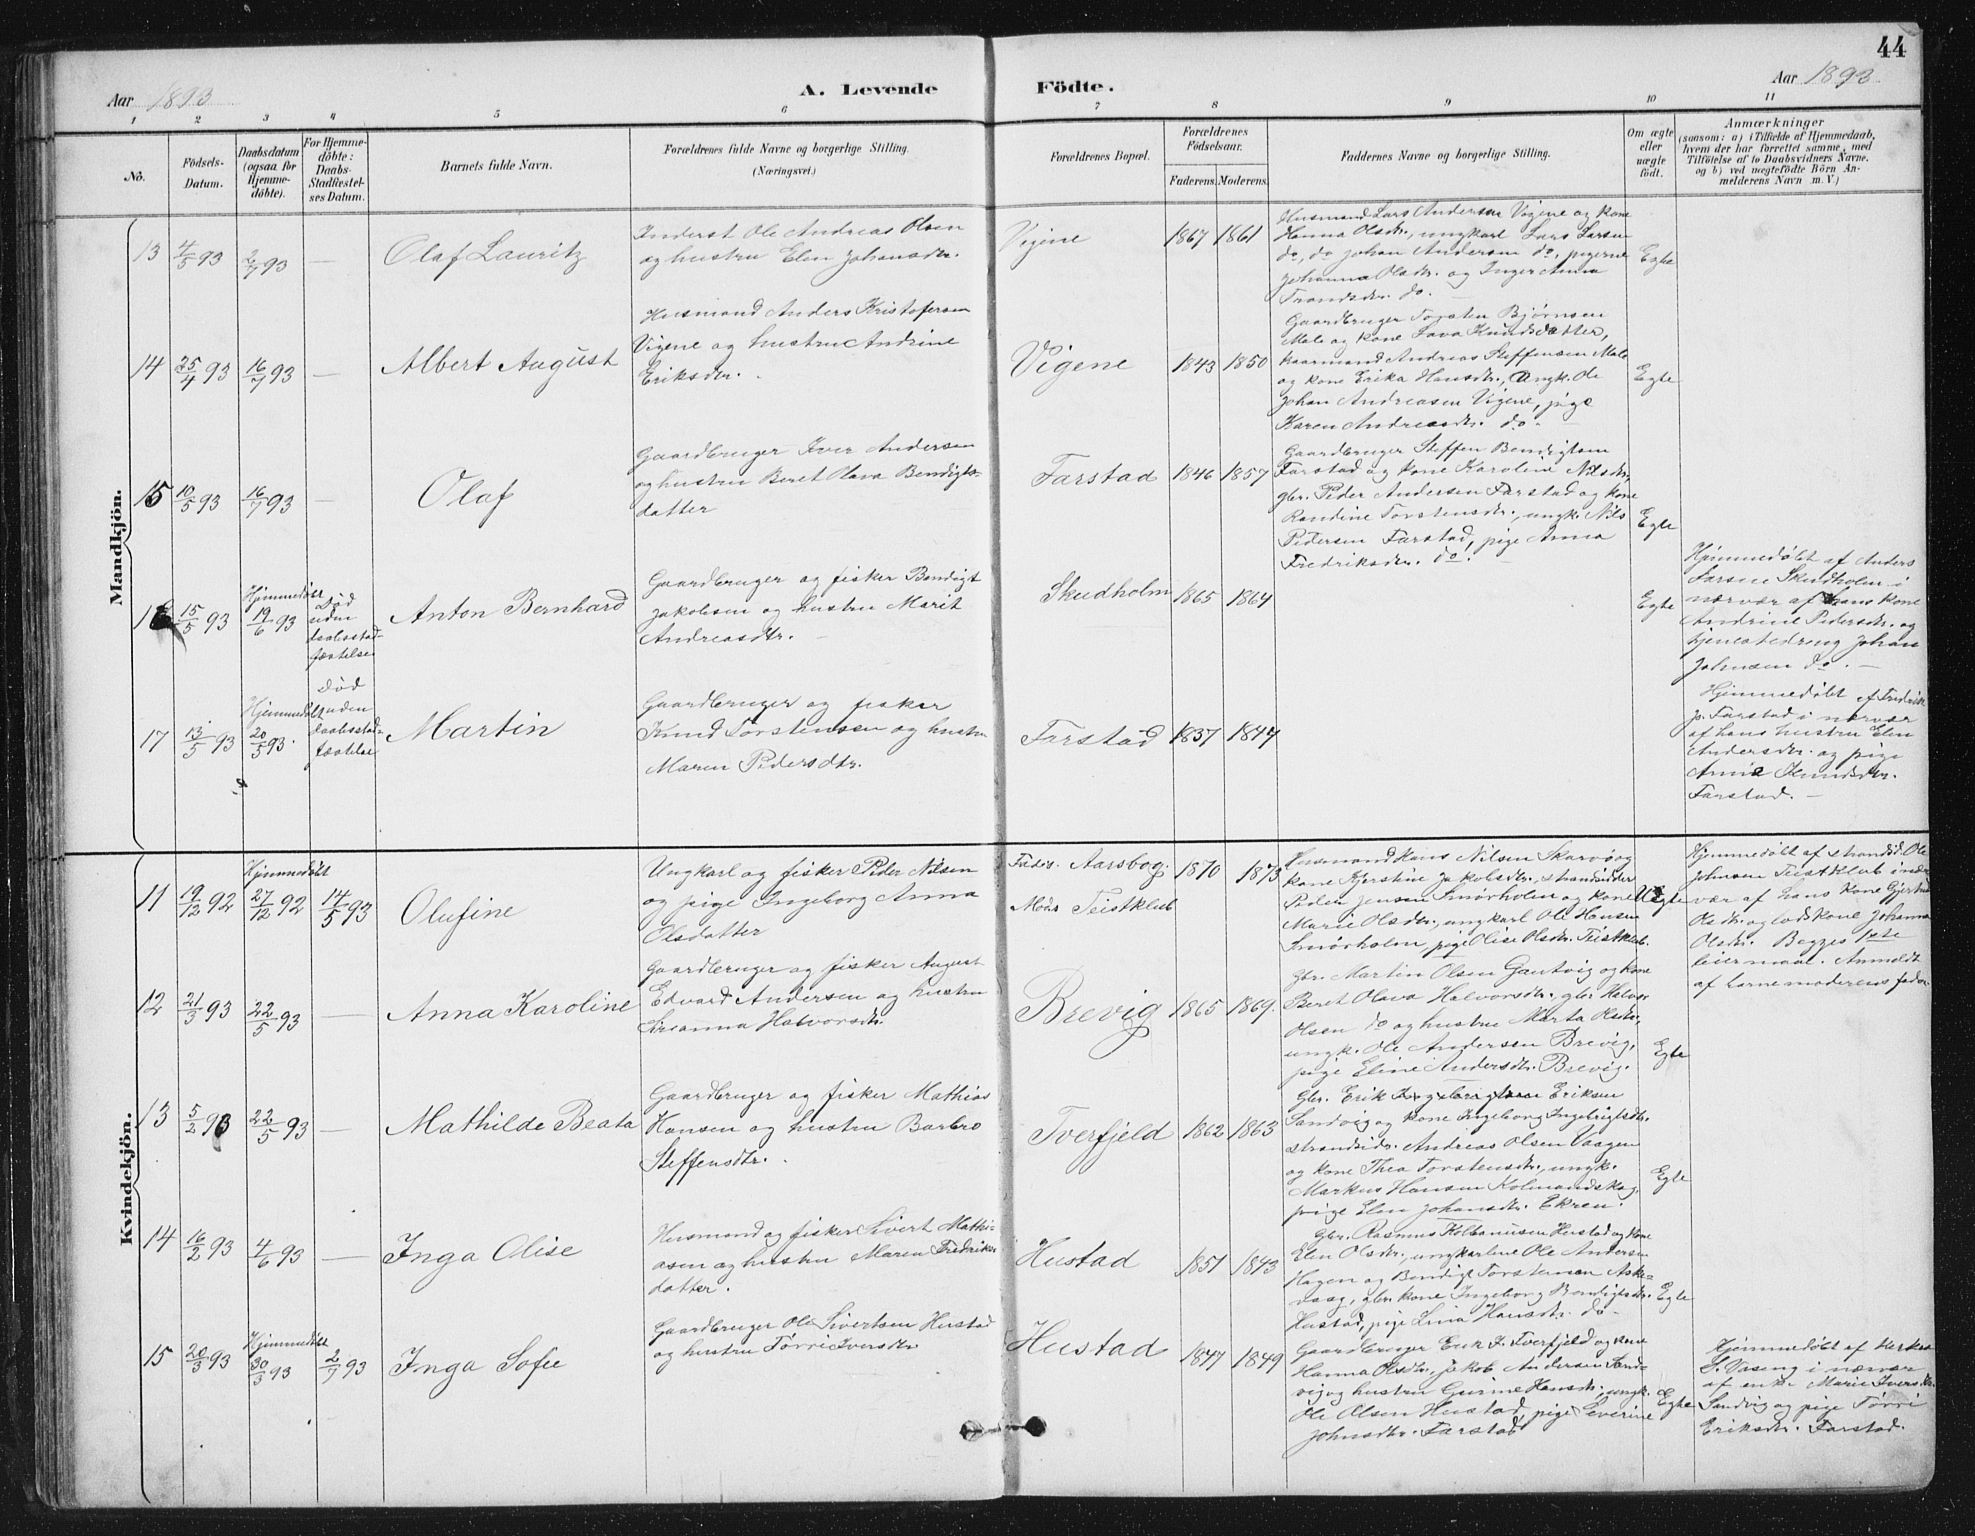 44
Aar 1893
A. Levende Födte.
Aar 1893
1 2 3 4 5 6 7 8 9 10 11
No.
Födsels-Datum.
Daabsdatum (ogsaa for Hjemme-döbte).
For Hjemme-döbte: Daabs-Stadfæstel-ses Datum.
Barnets fulde Navn.
Forældrenes fulde Navne og borgerlige Stilling.
(Næringsvei.)
Forældrenes Bopæl.
Forældrenes Födselsaar.
Faderens. Moderens.
Faddernes Navne og borgerlige Stilling.
Om ægte eller uægte födt.
Anmærkninger
(saasom: a) i Tilfælde af Hjemmedaab,
hvem der har forrettet samme, med
Tilföielse af to Daabsvidners Navne.
og b) ved uægtefödte Börn An-
melderens Navn m. V.)
Mandkjön.
13 4/5 93 2/7 93 — Olaf Lauritz
Inderst Ole Andreas Olsen
og hustru Elen Johansdtr.
Vigene 1867 1861
Husmand Lars Andersen Vigene og kone
Hanna Olsdtr., ungkarl Lars Larsen
do, do Johan Andersen do, pigerne
Johanna Olsdtr. og Inger Anna
Trondsdtr. do.
Egte
14 25/4 93 16/7 93 — Albert August
Husmand Anders Kristofersen
Vigene og hustru Andrine
Eriksdtr.
Vigene 1843 1850
Gaardbruger Torsten Bjørnsen
Male og kone Lava Knudsdatter,
kaarmand Andreas Steffensen Male
og kone Erika Hansdtr., Ungk. Ole
Johan Andreasen Vigene, pige
Karen Andreasdtr. do.
Egte
15 10/5 93 16/7 93 — Olaf
Gaardbruger Iver Andersen
og hustru Beret Olava Bendigts-
datter
Farstad 1846 1857
Gaardbruger Steffen Bendigtsen
Farstad og kone Karoline Nilsdtr.,
gbr. Peder Andersen Farstad og kone
Randine Torstensdtr., ungk. Nils
Pedersen Farstad, pige Anna
Fredriksdtr. do.
Egte
16 15/5 93 Hjemmedöbt 19/6 93
Död uden daabsstad-fæstelse
Anton Bernhard
Gaardbruger og fisker Bendigt
Jakobsen og hustru Marit
Andreasdtr.
Skudholm 1865 1864
Egte
Hjemmedöbt af Anders
Larsen Skudholm i
nærvær af hans kone
Andrine Pedersdtr. og
tjenestedreng Johan
Johnsen do.
17 13/5 93 Hjemmedöbt 20/5 93.
Död uden daabsstad-fæstelse
Martin
Gaardbruger og fisker
Knud Torstensen og hustru
Maren Pedersdtr.
Farstad 1837 1847
Hjemmedöbt af Fredrik
P. Farstad i nærvær
af hans hustru Elen
Andersdtr. og pige
Anne Knudsdtr.
Farstad.
Kvindekjön.
11 19/12 92 Hjemmedöbt 27/12 92 14/5 93 Olufine
Ungkarl og fisker Peder Nilsen
og pige Ingeborg Anna
Olsdatter
Fader. Aarsbog.
Mods Teistklub
1870 1873
Husmand Hans Nilsen Skarvøy og
kone Kjerstine Jakobsdtr., strandsidder
Peder Jensen Smörholm og kone
Marie Olsdtr., ungkarl Ole Hansen
Smörholm, pige Olise Olsdtr. Teistklub.
Uegte
Hjemmedöbt af strandsid. Ole
Johnsen Teistklub i nær-
vær af hans kone Gjertrud
Olsdtr. og lods kone Johanna
Olsdtr. Begges 1ste
leiermaal. Anmeldt
af barnemoderens fader.
12 21/3 93 22/5 93 — Anna Karoline
Gaardbruger og fisker August
Edvard Andersen og hustru
Susanna Halvorsdtr.
Brevig 1865 1869.
Gbr. Martin Olsen Gautvig og kone
Beret Olava Halvorsdtr., gbr. Halvor
Olsen do og hustru Marta Olsdtr.,
ungk. Ole Andersen Brevig,
pige Eline Andersdtr. Brevig.
Egte
13 5/2 93 22/5 93 — Mathilde Beata
Gaardbruger og fisker Mathias
Hansen og hustru Barbro
Steffensdtr.
Tverfjeld 1862 1863
Gbr. Erik Eriksen
Sandvig og kone Ingeborg Ingebrigtsdtr.
strandsid. Andreas Olsen Vaagen
og kone Thea Torstensdtr., ungk.
Markus Hansen Kolmandskog,
pige Elen Johansdtr. Ekren.
Egte
14 16/2 93 4/6 93 — Inga Olise
Husmand og fisker Sivert Mathi-
asen og hustru Maren Fredriks-
datter.
Hustad 1857 1843
Gbr. Rasmus Kolbanussen Hustad og kone
Elen Olsdtr., ungkarlene Ole Andersen
Hagen og Bendigt Torstensen Aske-
vaag, gbr. kone Ingeborg Bendigtsdtr.
Hustad, pige Lina Hansdtr. do
Egte
15 20/3 93 Hjemmedöbt 30/3 93 2/7 93 Inga Sofie
Gaardbruger Ole Sivertsen Hustad
og hustru Tørri Iversdtr.
Hustad 1847 1849
Gaardbruger Erik J. Tverfjeld og kone
Hanna Olsdtr., Jakob Andersen Sand-
vig og hustru Gurine Hansdtr., ungk.
Ole Olsen Hustad, pige Severine
Johnsdtr. Farstad
Egte
Hjemmedöbt af
i nærvær
af enke Marie Iversdtr.
Sandvig og pige Tørri
Eriksdtr. Farstad.